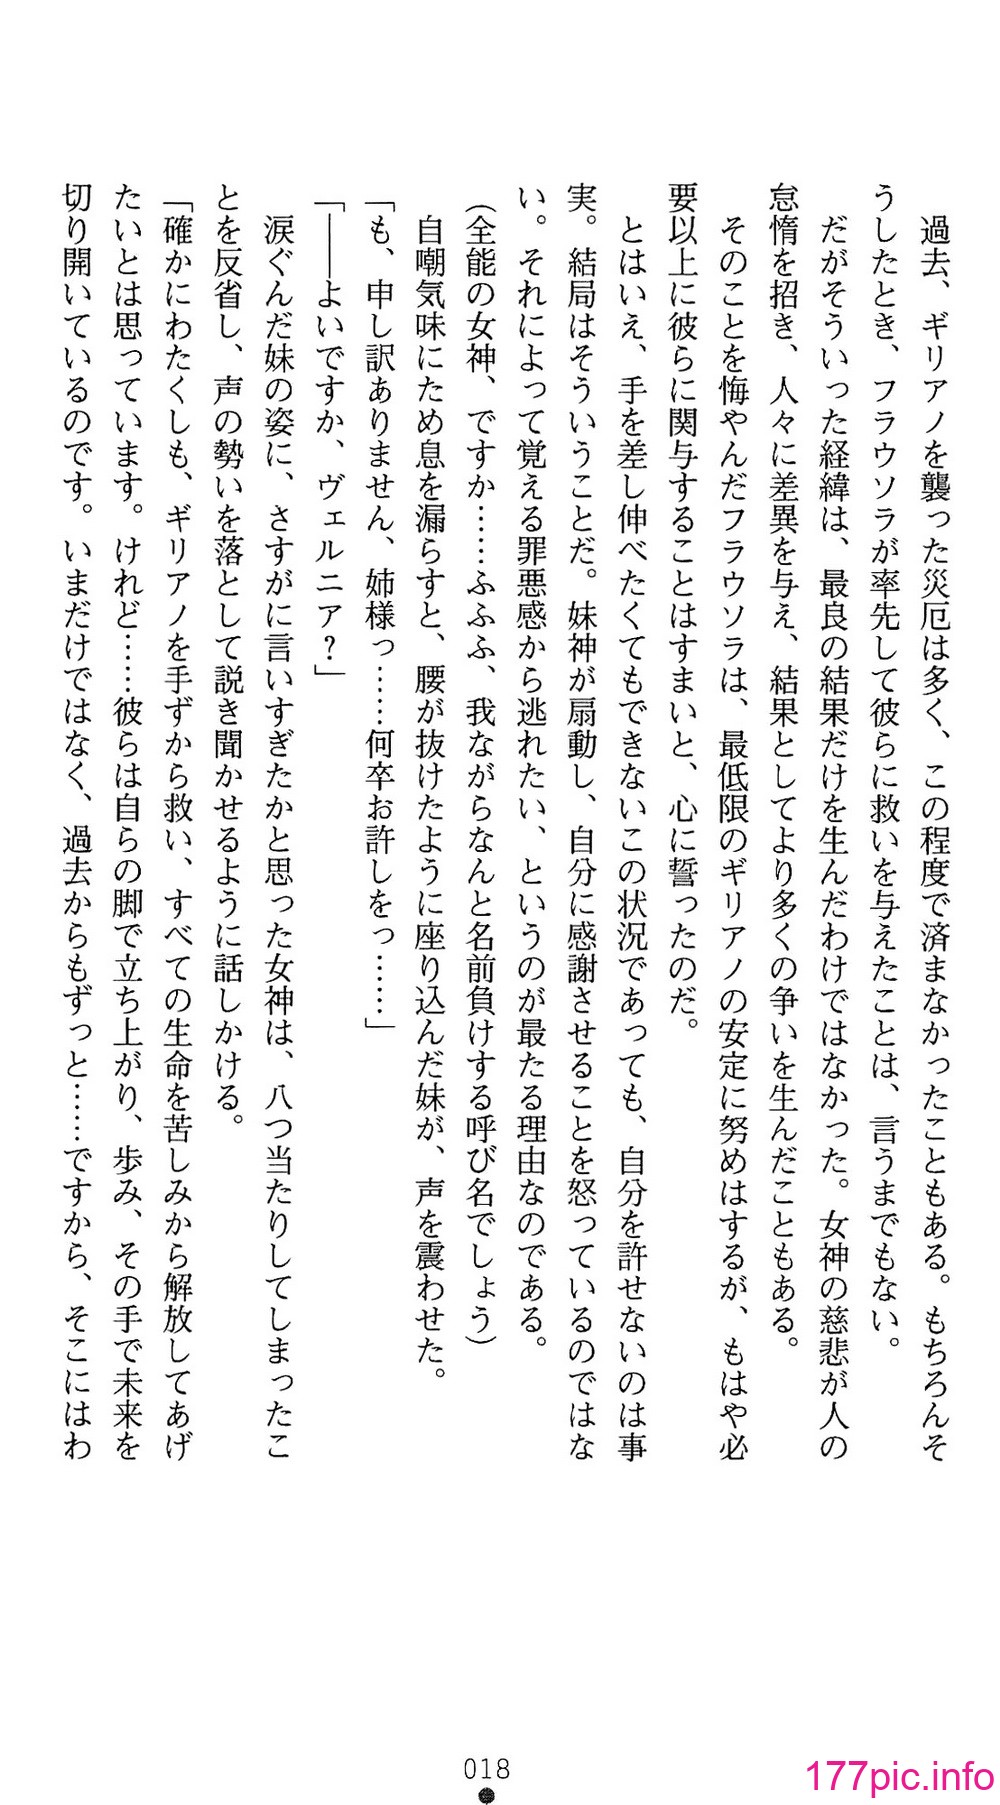 過去、ギリアノを襲った災厄は多く、この程度で済まなかったこともある。もちろんそ
うしたとき、フラウソラが率先して彼らに救いを与えたことは、言うまでもない。
　だがそういった経緯は、最良の結果だけを生んだわけではなかった。女神の慈悲が人の
怠惰を招き、人々に差異を与え、結果としてより多くの争いを生んだこともある。
　そのことを悔やんだフラウソラは、最低限のギリアノの安定に努めはするが、もはや必
要以上に彼らに関与することはすまいと、心に誓ったのだ。
　とはいえ、手を差し伸べたくてもできないこの状況であっても、自分を許せないのは事
実。結局はそういうことだ。妹神が扇動し、自分に感謝させることを怒っているのではな
い。それによって覚える罪悪感から逃れたい、というのが最たる理由なのである。
（全能の女神、ですか……ふふふ、我ながらなんと名前負けする呼び名でしょう）
　自嘲気味にため息を漏らすと、腰が抜けたように座り込んだ妹が、声を震わせた。
「も、申し訳ありません、姉様っ……何卒お許しをっ……」
「――よいですか、ヴェルニア？」
　涙ぐんだ妹の姿に、さすがに言いすぎたかと思った女神は、八つ当たりしてしまったこ
とを反省し、声の勢いを落として説き聞かせるように話しかける。
「確かにわたくしも、ギリアノを手ずから救い、すべての生命を苦しみから解放してあげ
たいとは思っています。けれど……彼らは自らの脚で立ち上がり、歩み、その手で未来を
切り開いているのです。いまだけではなく、過去からもずっと……ですから、そこにはわ
018
177pic.info